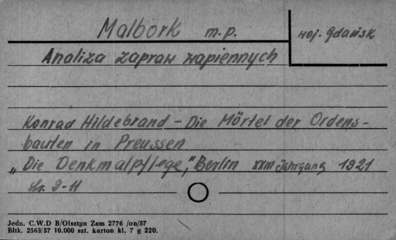 Malbork m.p.
woj. Gdańsk
Analiza zapraw wapiennych
Konrad Hildebrand - Die Mörtel der Ordens-
bauten in Preussen
„Die Denkmalpflege," Berlin XXIII Jahrgang 1921
9-11
Jedn. C.W.D B/Olsztyn Zam 2776 /on/57
Bltk. 2563/57 10.000 szt. karton kl. 7 g 220.